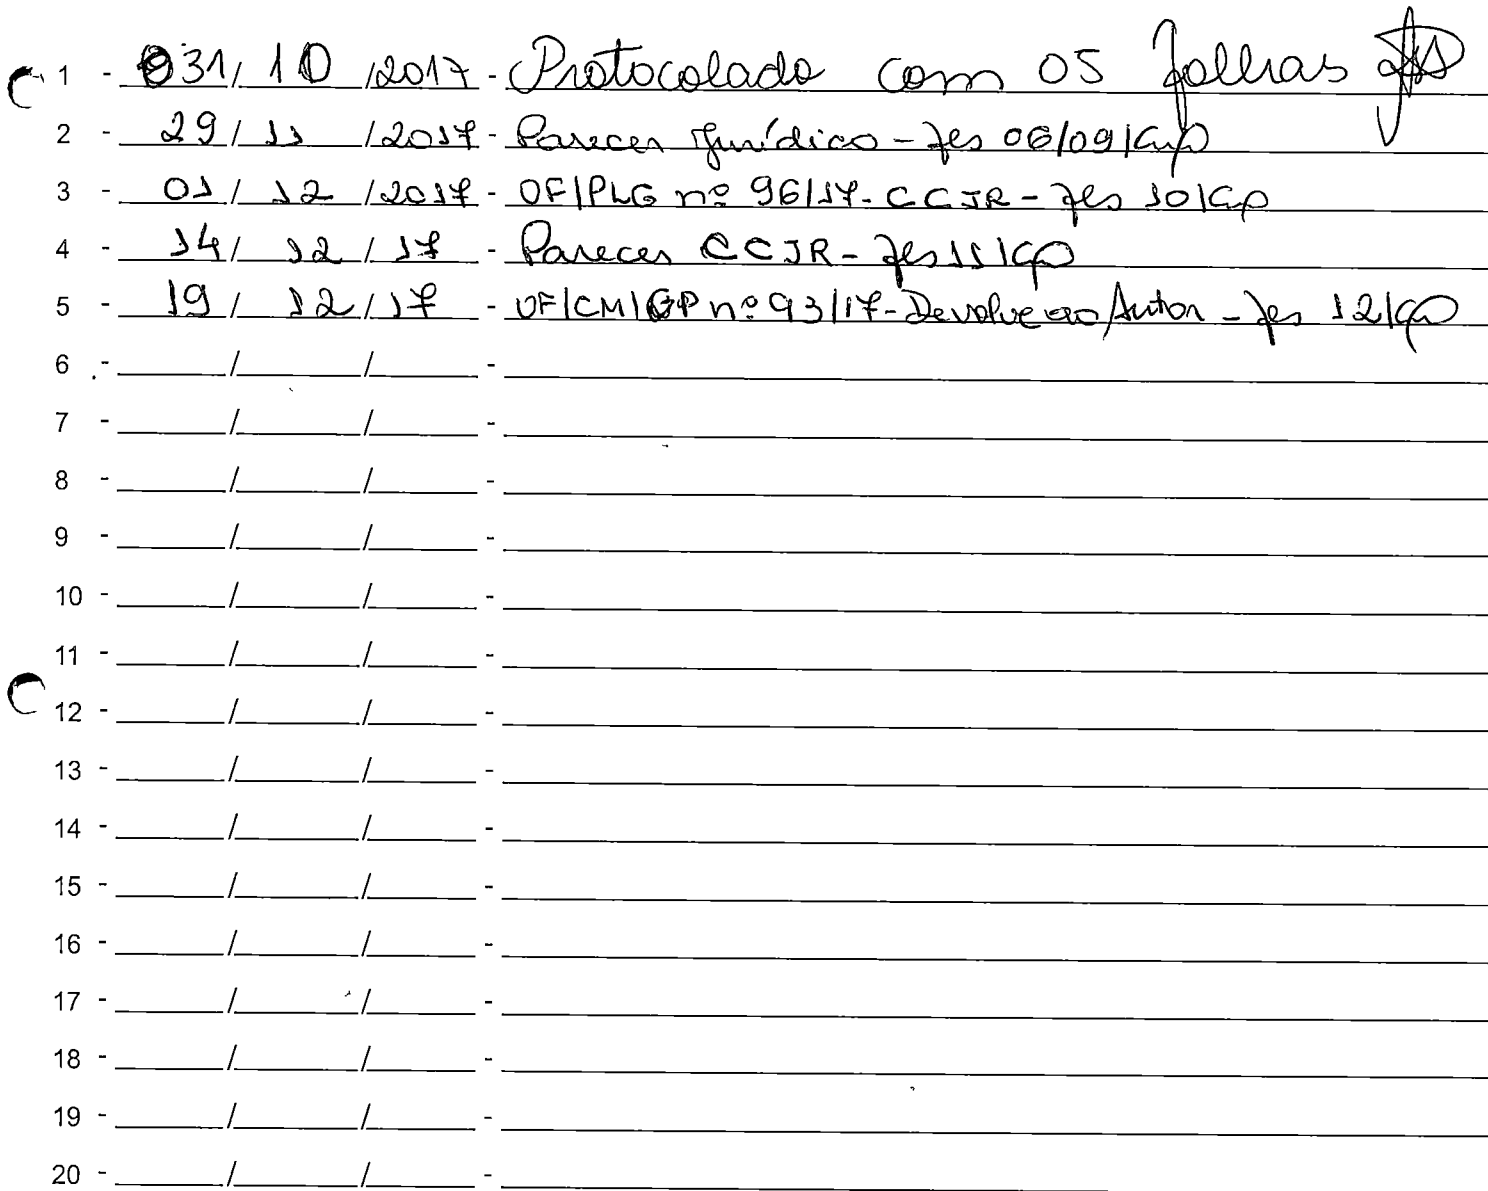 1 - 31/ 10 /2017 - Protocolado com 05 folhas
2 - 29/ 11 /2017 - Parecer Jurídico - fls 06/09/
3 - 01/ 12 /2017 - OF/PLG nº 96/17 - CCJR - fls 10/
4 - 14/ 12 / 17 - Parecer CCJR - fls 11/
5 - 19/ 12 / 17 - OF/CM/GP nº 93/17 - Devolução/Autor - fls 12/
6 - / / -
7 - / / -
8 - / / -
9 - / / -
10 - / / -
11 - / / -
12 - / / -
13 - / / -
14 - / / -
15 - / / -
16 - / / -
17 - / / -
18 - / / -
19 - / / -
20 - / / -